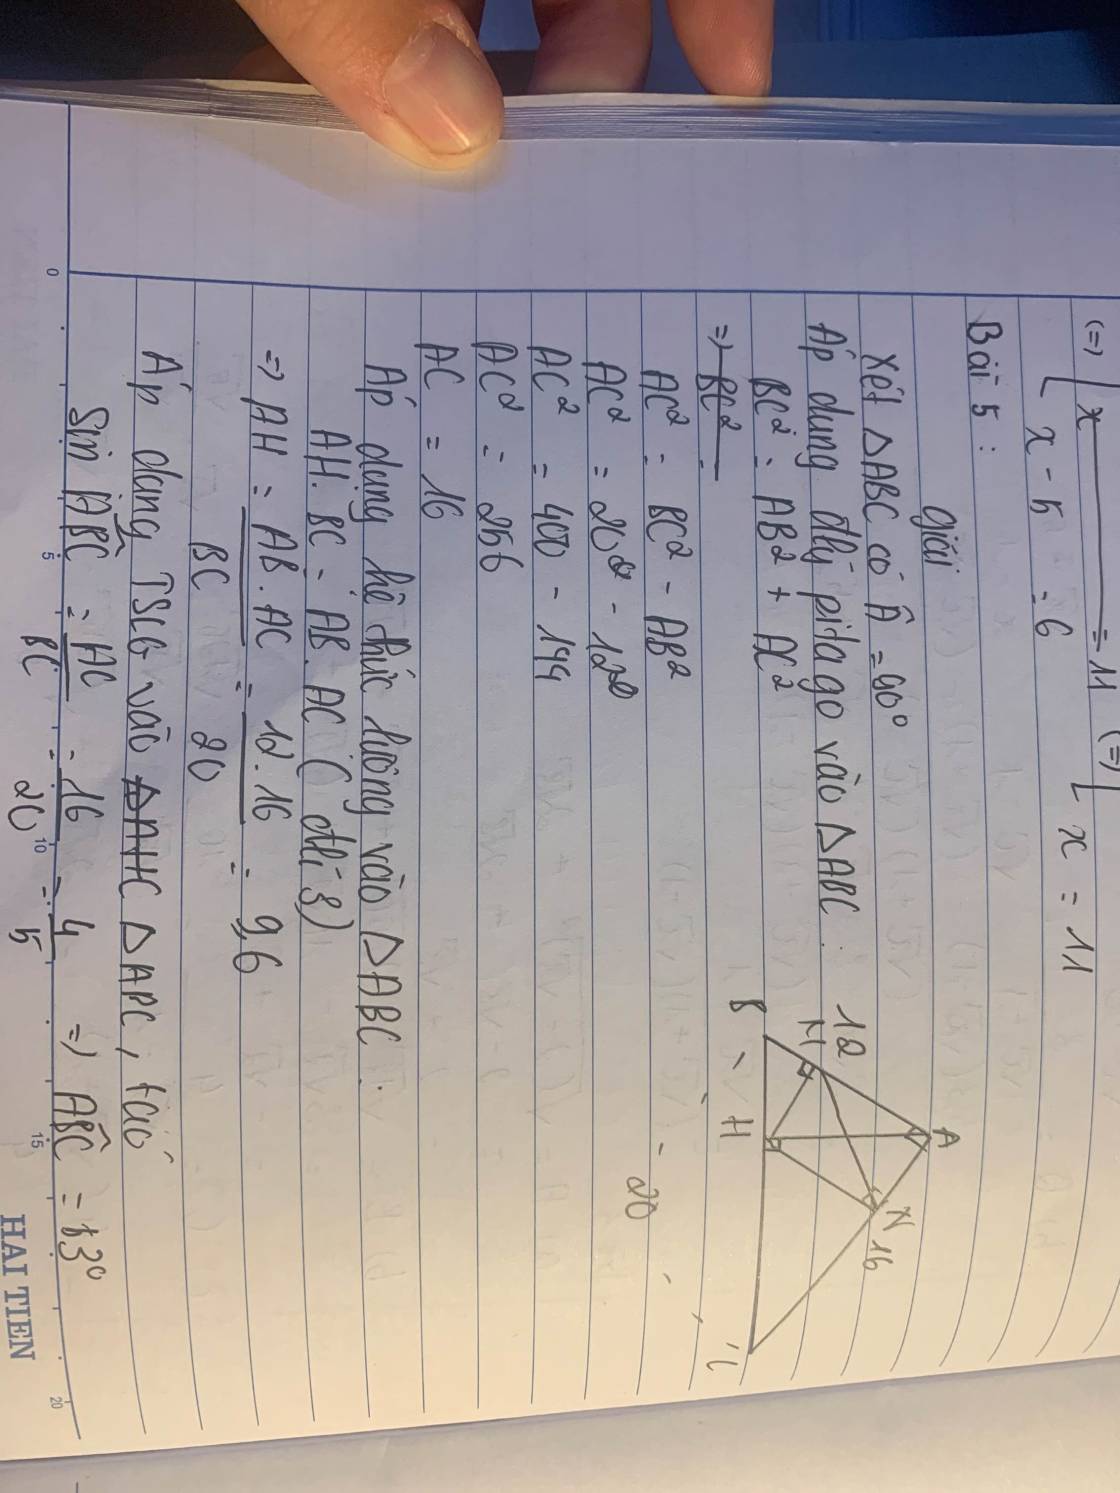 (=) [ x = 11 (=) [
x - 5 = 6 x = 11
Bài 5 :
giải
Xét △ABC có Â = 90°
Áp dụng đlý pitago vào △ABC :
BC² = AB² + AC²
=) BC² =
AC² = BC² - AB²
AC² = 20² - 12²
AC² = 400 - 144
AC² = 256
AC = 16
A
N
16
12
M
B
H
C
20
Áp dụng hệ thức lường vào △ABC :
AH. BC = AB. AC ( đlí 3)
=) AH = AB. AC / BC = 12. 16 / 20 = 9,6
Áp dang TSLG vào △AHC △ABC, taó
Sin ABC = AC / BC = 16 / 20 = 4 / 5 =) ABC = 53°
0 5 10 15 20
HAI TIEN